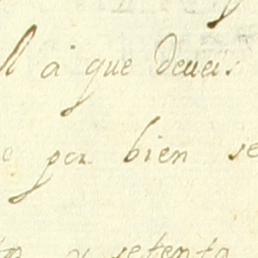 à que deveis
por bien se
y setenta